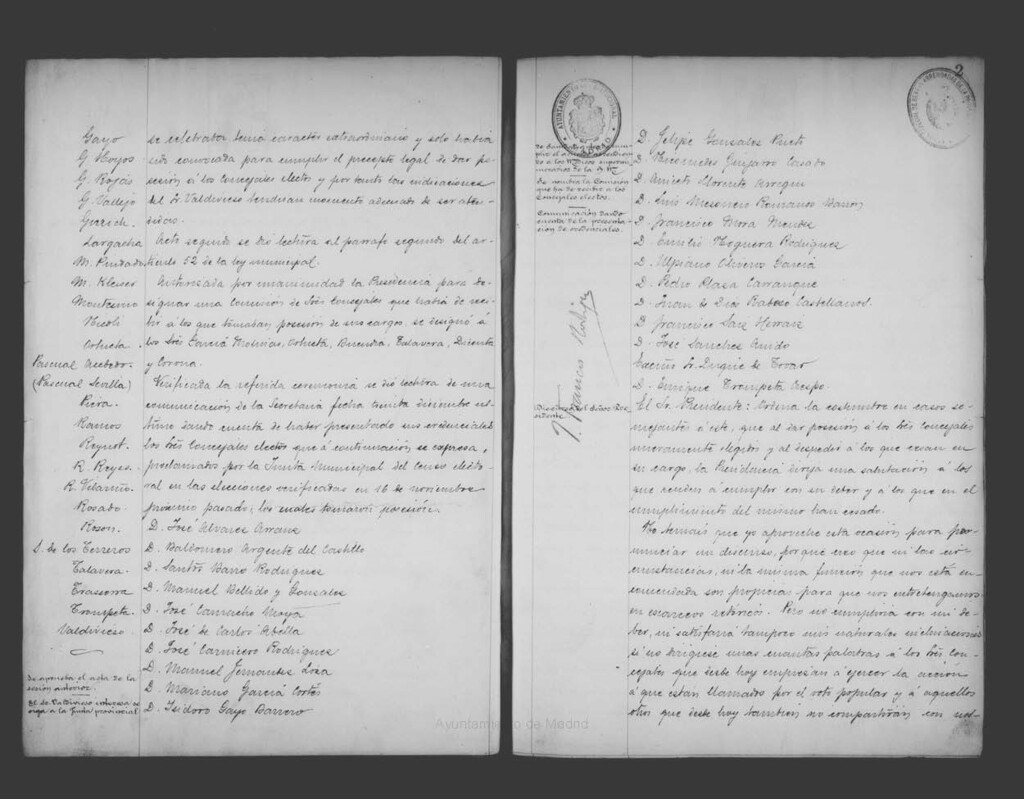 Gayo
G. Hoyos
G. Rojas
G. Vallejo
Gurich.
Largacha
M. Pindado
M. Kleiser
Montesino
Nicoli
Orhueta.
Pascual
(Pascual Sevilla)
Piera.
Ramos
Reynot.
R. Reyes.
R. Vilariño.
Rosado.
Rosón.
S. de los Terreros
Talavera.
Trasserra
Trompeta.
Valdivieso.
Se aprueba el acta de la
sesión anterior.
El Sr. Valdivieso
a la Junta provincial
se celebrator tenía caracter extraordinario y solo había
sido convocada para cumplir el precepto legal de dar po-
sesión á los Concejales electos y por tanto las indicaciones
del Sr. Valdivieso tendrían momento adecuado de ser aten-
didas.
Acto seguido se dió lectura al párrafo segundo del ar-
tículo 52 de la ley municipal.
Autorizada por unanimidad la Presidencia para de-
signar una Comisión de Sres Concejales que había de reci-
bir á los que tomaban posesión de sus cargos, se designó á
los Sres García Molinas, Orhueta, Buendía, Talavera, Dicenta
y Corona.
Verificada la referida ceremonia se dió lectura de una
comunicación de la Secretaría fecha treinta diciembre úl-
timo dando cuenta de haber presentado sus credenciales
los Sres Concejales electos que á continuación se expresa,
proclamados por la Junta Municipal del Censo electo-
ral en las elecciones verificadas en 16 de noviembre
próximo pasado; los cuales tomaron posesión.
D. José Alvarez Arranz
D. Baldomero Argente del Castillo
D. Santos Barro Rodríguez
D. Manuel Bellido y González
D. José Camacho Moya
D. José de Carlos Abella
D. José Carnicero Rodríguez
D. Manuel Fernandez Loza
D. Mariano García Cortés
D. Isidoro Gayo Barrero
2
AYUNTAMIENTO
Se nombra la Comisión
que ha de recibir á los
Concejales electos.
Comunicación dando
cuenta de la presenta-
ción de credenciales.
Discurso del Señor Pre-
sidente.
D. Felipe Gonzalez Prieto
D. Nicomedes Guijarro Casado
D. Aniceto Llorente Arregui
D. Luis Mesonero Romanos Barrón
D. Francisco Mora Mendez
D. Emilio Noguera Rodríguez
D. Ulpiano Olivero García
D. Pedro Plasa Carranque
D. Juan de Dios Raboso Castellanos
D. Francisco Saiz Herraiz
D. José Sanchez Anido
Excmo Sr. Duque de Tovar
D. Enrique Trompeta Crespo
El Sr. Presidente: Ordena la costumbre en casos se-
mejantes á este, que al dar posesión á los Sres Concejales
nuevamente elegidos y al despedir á los que cesan en
su cargo, la Presidencia dirija una salutación á los
que acuden á cumplir con su deber y á los que en el
cumplimiento del mismo han cesado.
No temais que yo aproveche esta ocasión para pro-
nunciar un discurso, porque creo que ni las cir-
cunstancias, ni la misma función que nos está en-
comendada son propicias para que nos entretengamos
en escarceos retóricos. Pero no cumpliría con mi de-
ber, ni satisfaría tampoco mis naturales inclinaciones
si no dirigiese unas cuantas palabras á los Sres Con-
cejales que desde hoy empiezan á ejercer la acción
á que están llamados por el voto popular y á aquellos
otros que desde hoy también no compartirán con nos-
Ayuntamiento de Madrid